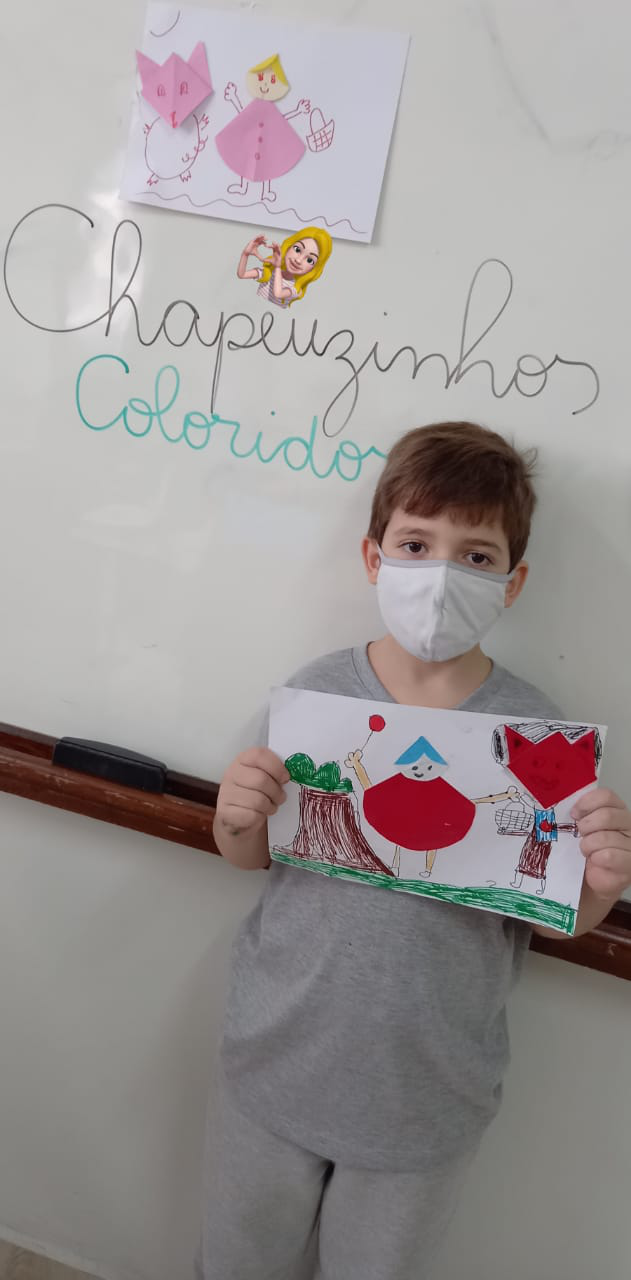 Chapeuzinhos
Coloridos